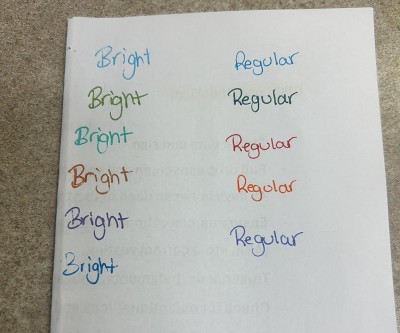 Bright Regular
Bright Regular
Bright Regular
Bright Regular
Bright Regular
Bright